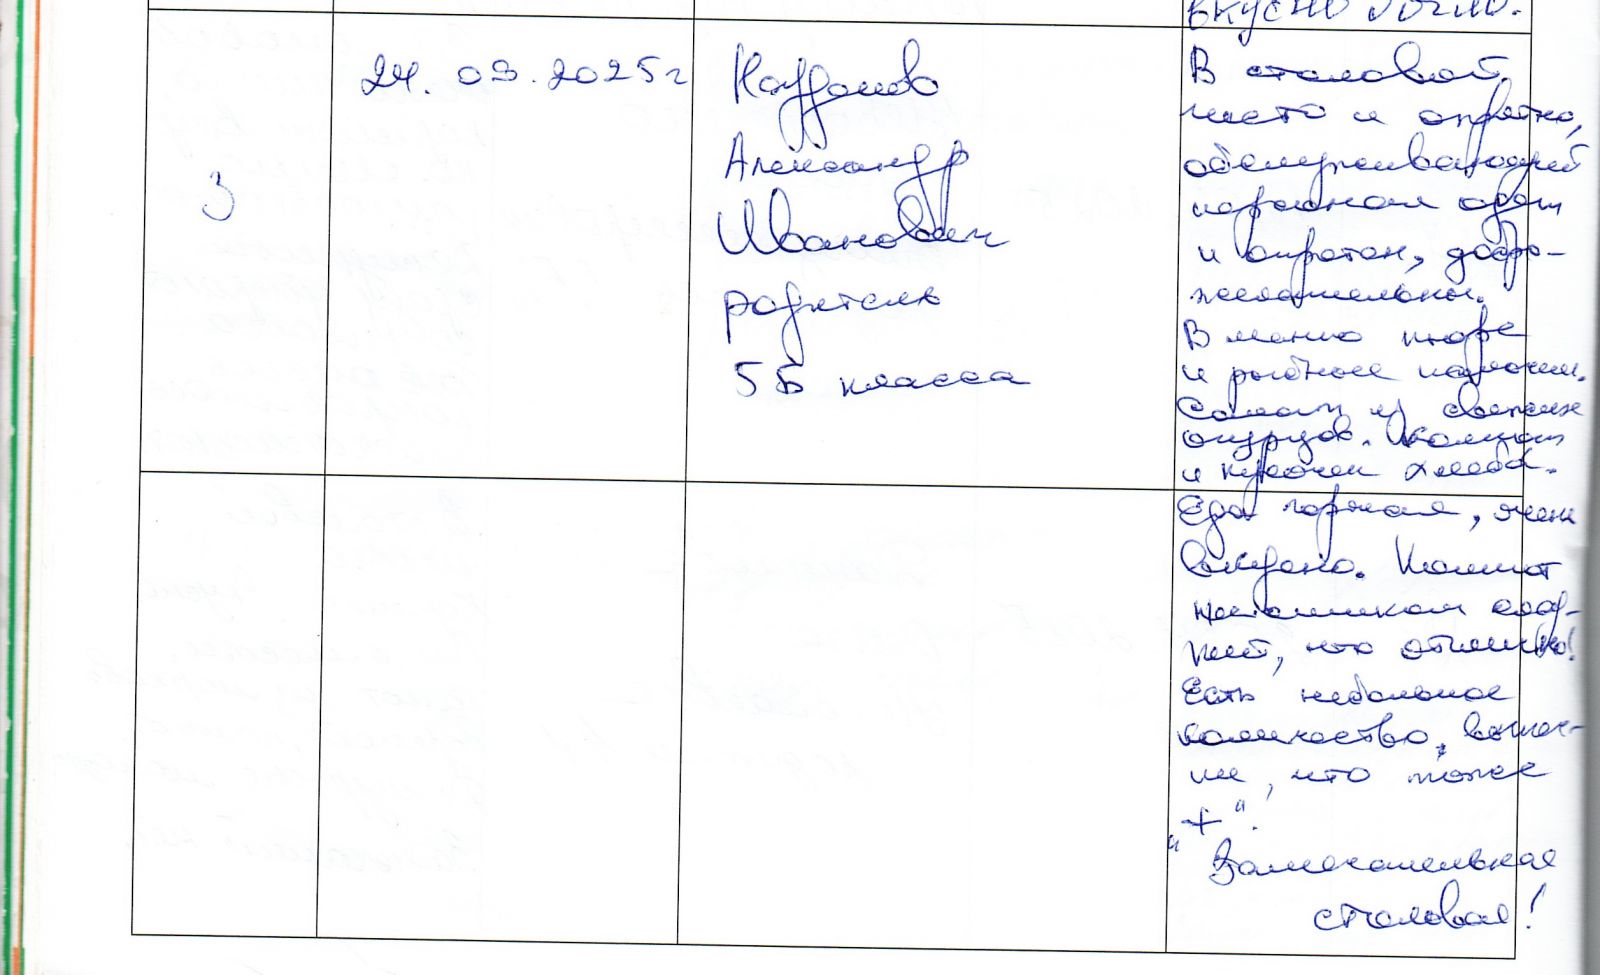 вкусно было.
3
24. 09. 2025г
Александр
Иванович
родитель
5Б класса
В столовой
чисто и опрятно,
обслуживающий
персонал одет
и опрятен, добро-
желательны.
В меню пюре
и рыбные палочки.
Салат из свежих
огурцов. Компот
и кусочек хлеба.
Еда горячая, очень
вкусно. Компот
не слишком слад-
кий, что отлично!
Есть небольшое
количество,
что тоже
"+".
Замечательная
столовая!